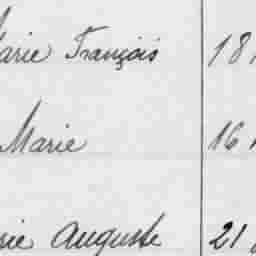 Marie François 18
Marie 16
Marie Auguste 21